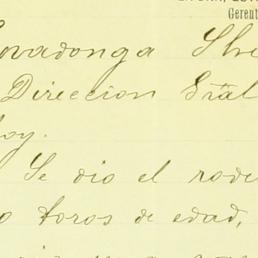 Gerent
ovadonga
Direccion Gral
hoy.
Se dio el rode
o toros de edad,